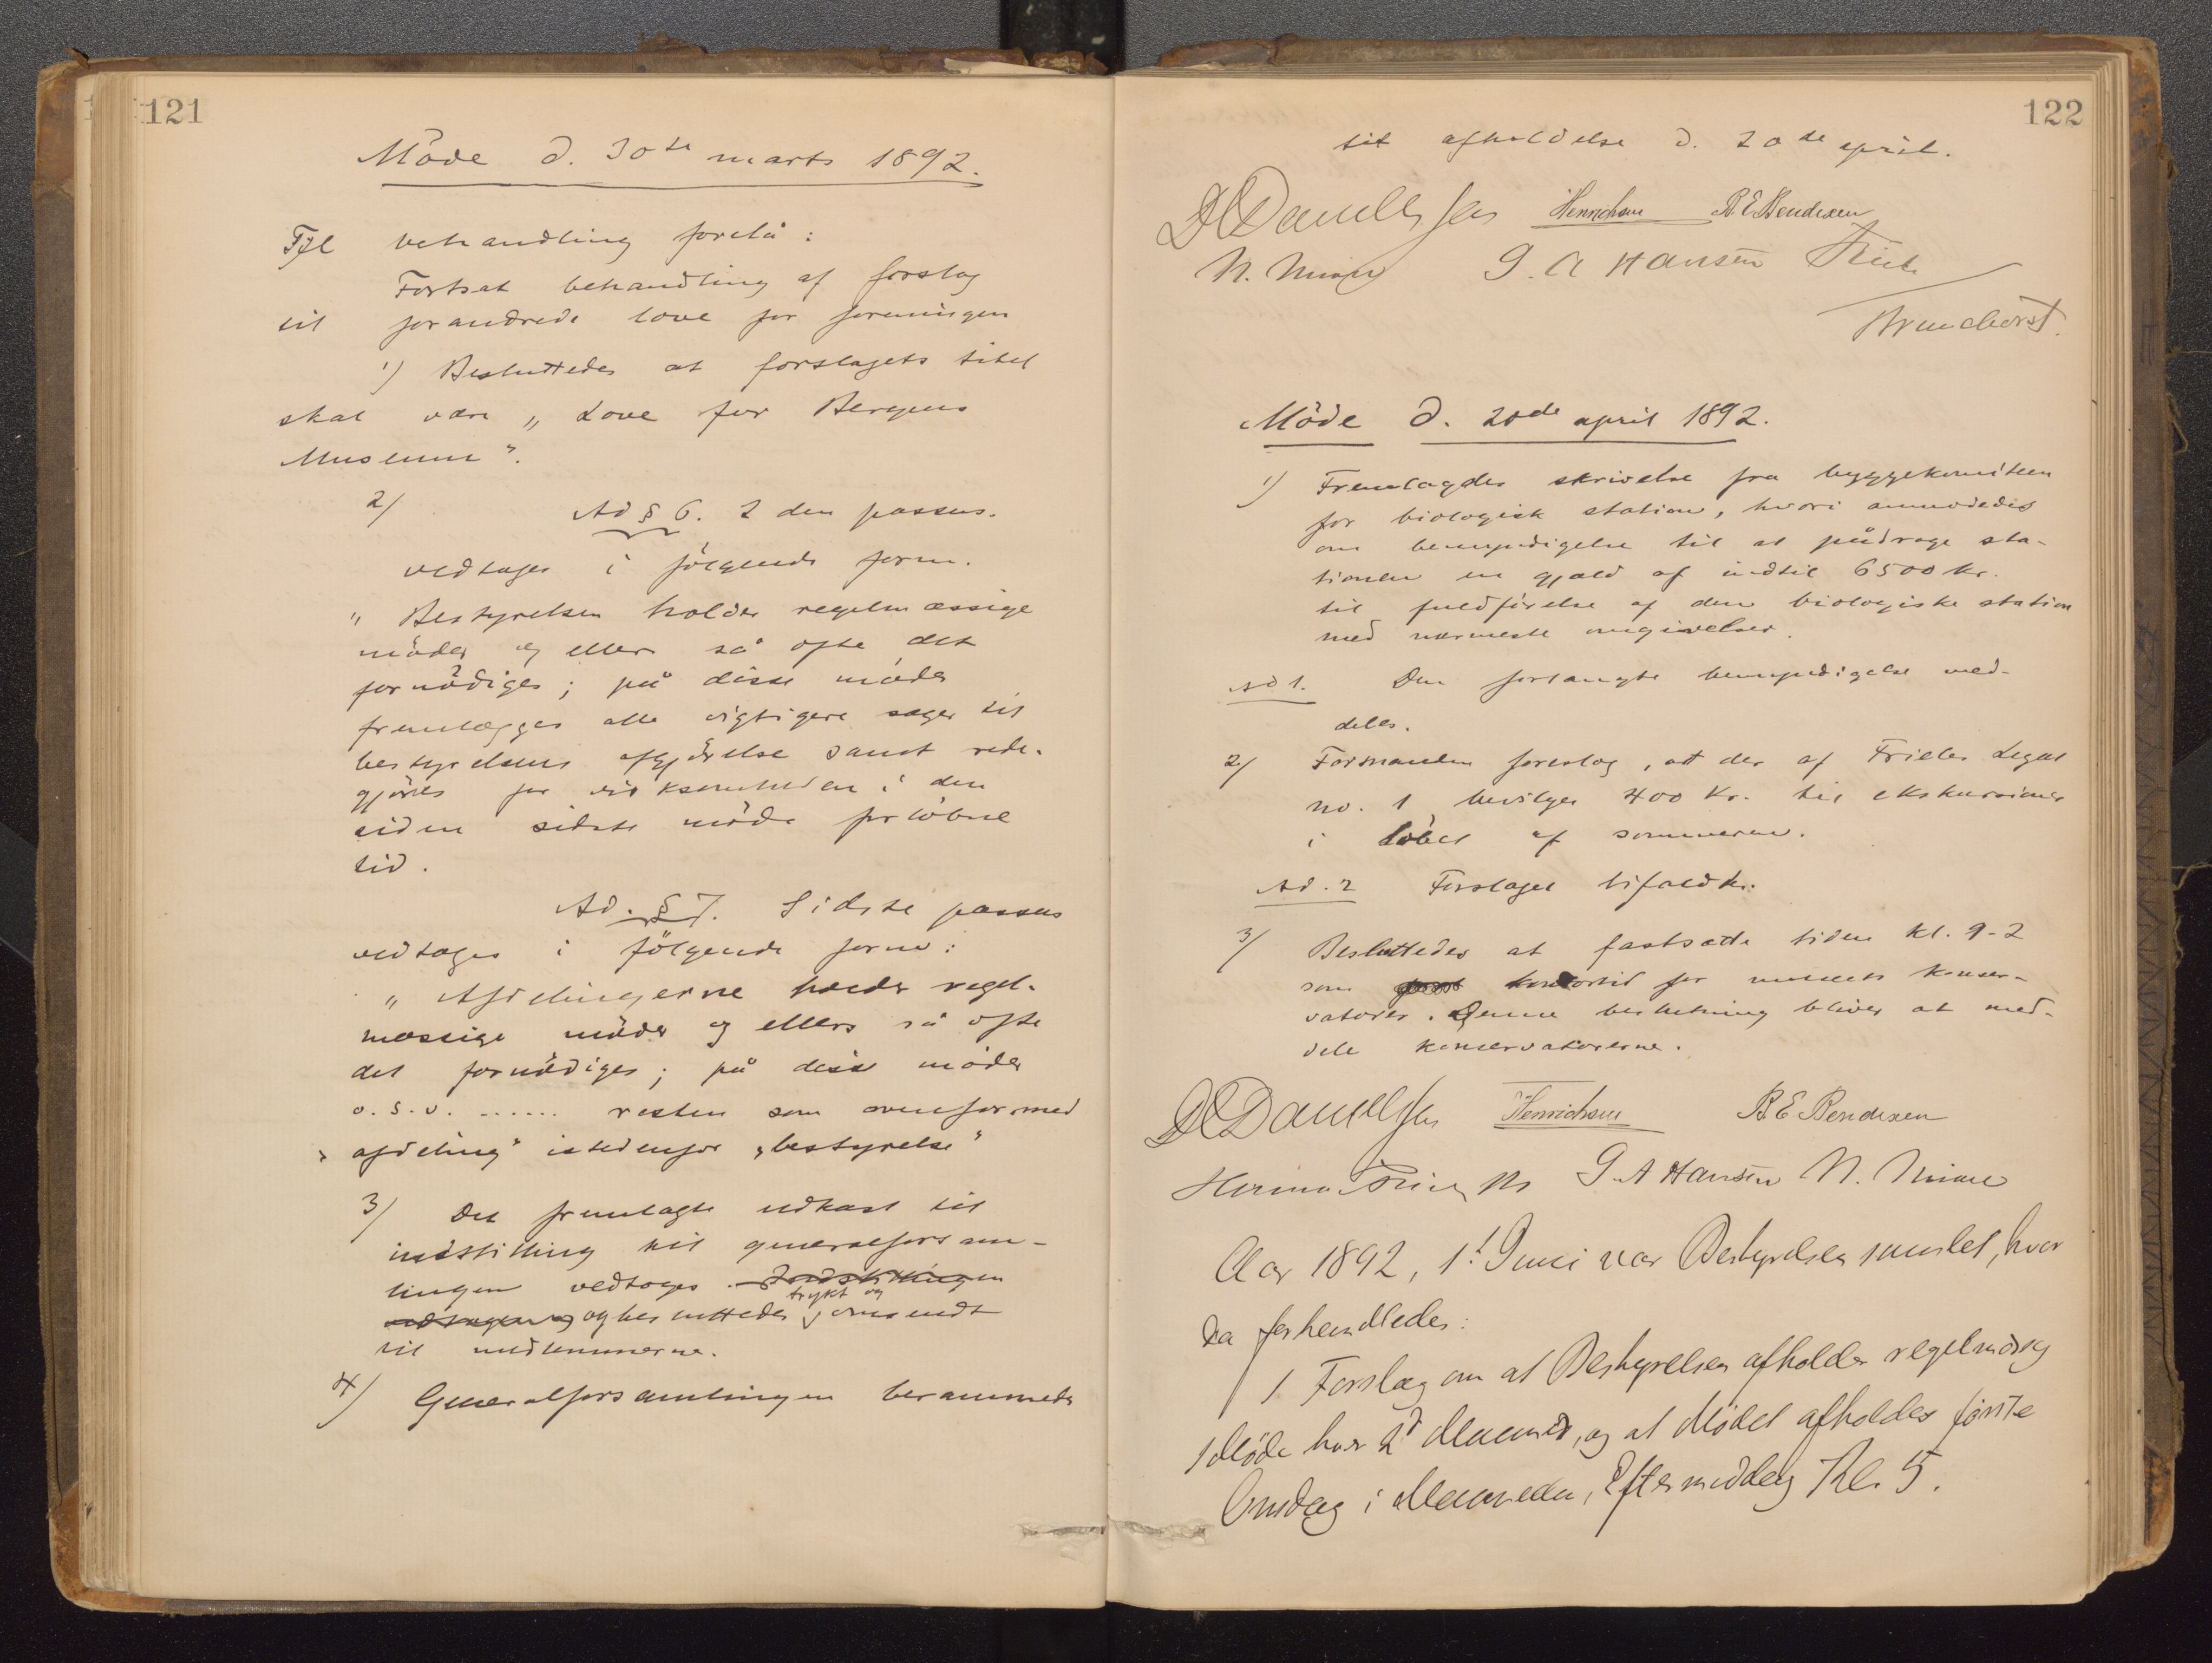 121
Möde d. 30te marts 1892.
Til behandling forelå:
Fortsat behandling af forslag
til forandrede love for foreningen
1) Besluttedes at forslagets titel
skal være „Love for Bergens
Museum”.
2) Ad § 6. 2den passus.
vedtages i fölgende form.
„Bestyrelsen holder regelmæssige
möder og ellers så ofte det
fornödiges; på disse möder
fremlægges alle vigtigere sager til
bestyrelsens afgjörelse samt rede-
gjöres for virksomheden i den
siden sidste möde forlöbne
tid.
Ad. § 7. Sidste passus
vedtages i fölgende form:
„Afdelingerne holder regel-
mæssige möder og ellers så ofte
det fornödiges; på disse möder
o.s.v. ...... resten som ovenfor med
„afdeling” istedenfor „bestyrelse”
3) Det fremlagte udkast til
indstilling til generalforsam-
lingen vedtoges. Indstillingen
og besluttedes trykt og omsendt
til medlemmerne.
4) Generalforsamlingen berammedes
122
til afholdelse d. 20de april.
DC Danielssen Henrichsen B E Bendixen
G. A Hansen
Brunchorst.
Möde d. 20de april 1892.
1) Fremlagdes skrivelse fra byggekomiteen
for biologisk station, hvori anmodedes
om bemyndigelse til at pådrage sta-
tionen en gjæld af indtil 6500 kr.
til fuldförelse af den biologiske station
med nærmeste omgivelser.
Ad 1. Den forlangte bemyndigelse med-
deles.
2) Formanden foreslog, at der af Frieles Legat
no. 1 bevilges 400 Kr. til ekskursioner
i löbet af sommeren.
Ad. 2 Forslaget bifaldtes.
3) Besluttedes at fastsætte tiden kl. 9-2
som kontortid for museets konser-
vatorer. Denne beslutning bliver at med-
dele konservatorerne.
DC Danielssen Henrichsen B E Bendixen
Herman Friele G. A Hansen
Aar 1892, 1ste Juni var Bestyrelsen samlet, hvor
da forhandledes:
1 Forslag om at Bestyrelsen afholder regelmæssig
1 Möde hver Maaned, og at Mödet afholdes förste
Onsdag i Maaneden, Eftermiddag Kl. 5.